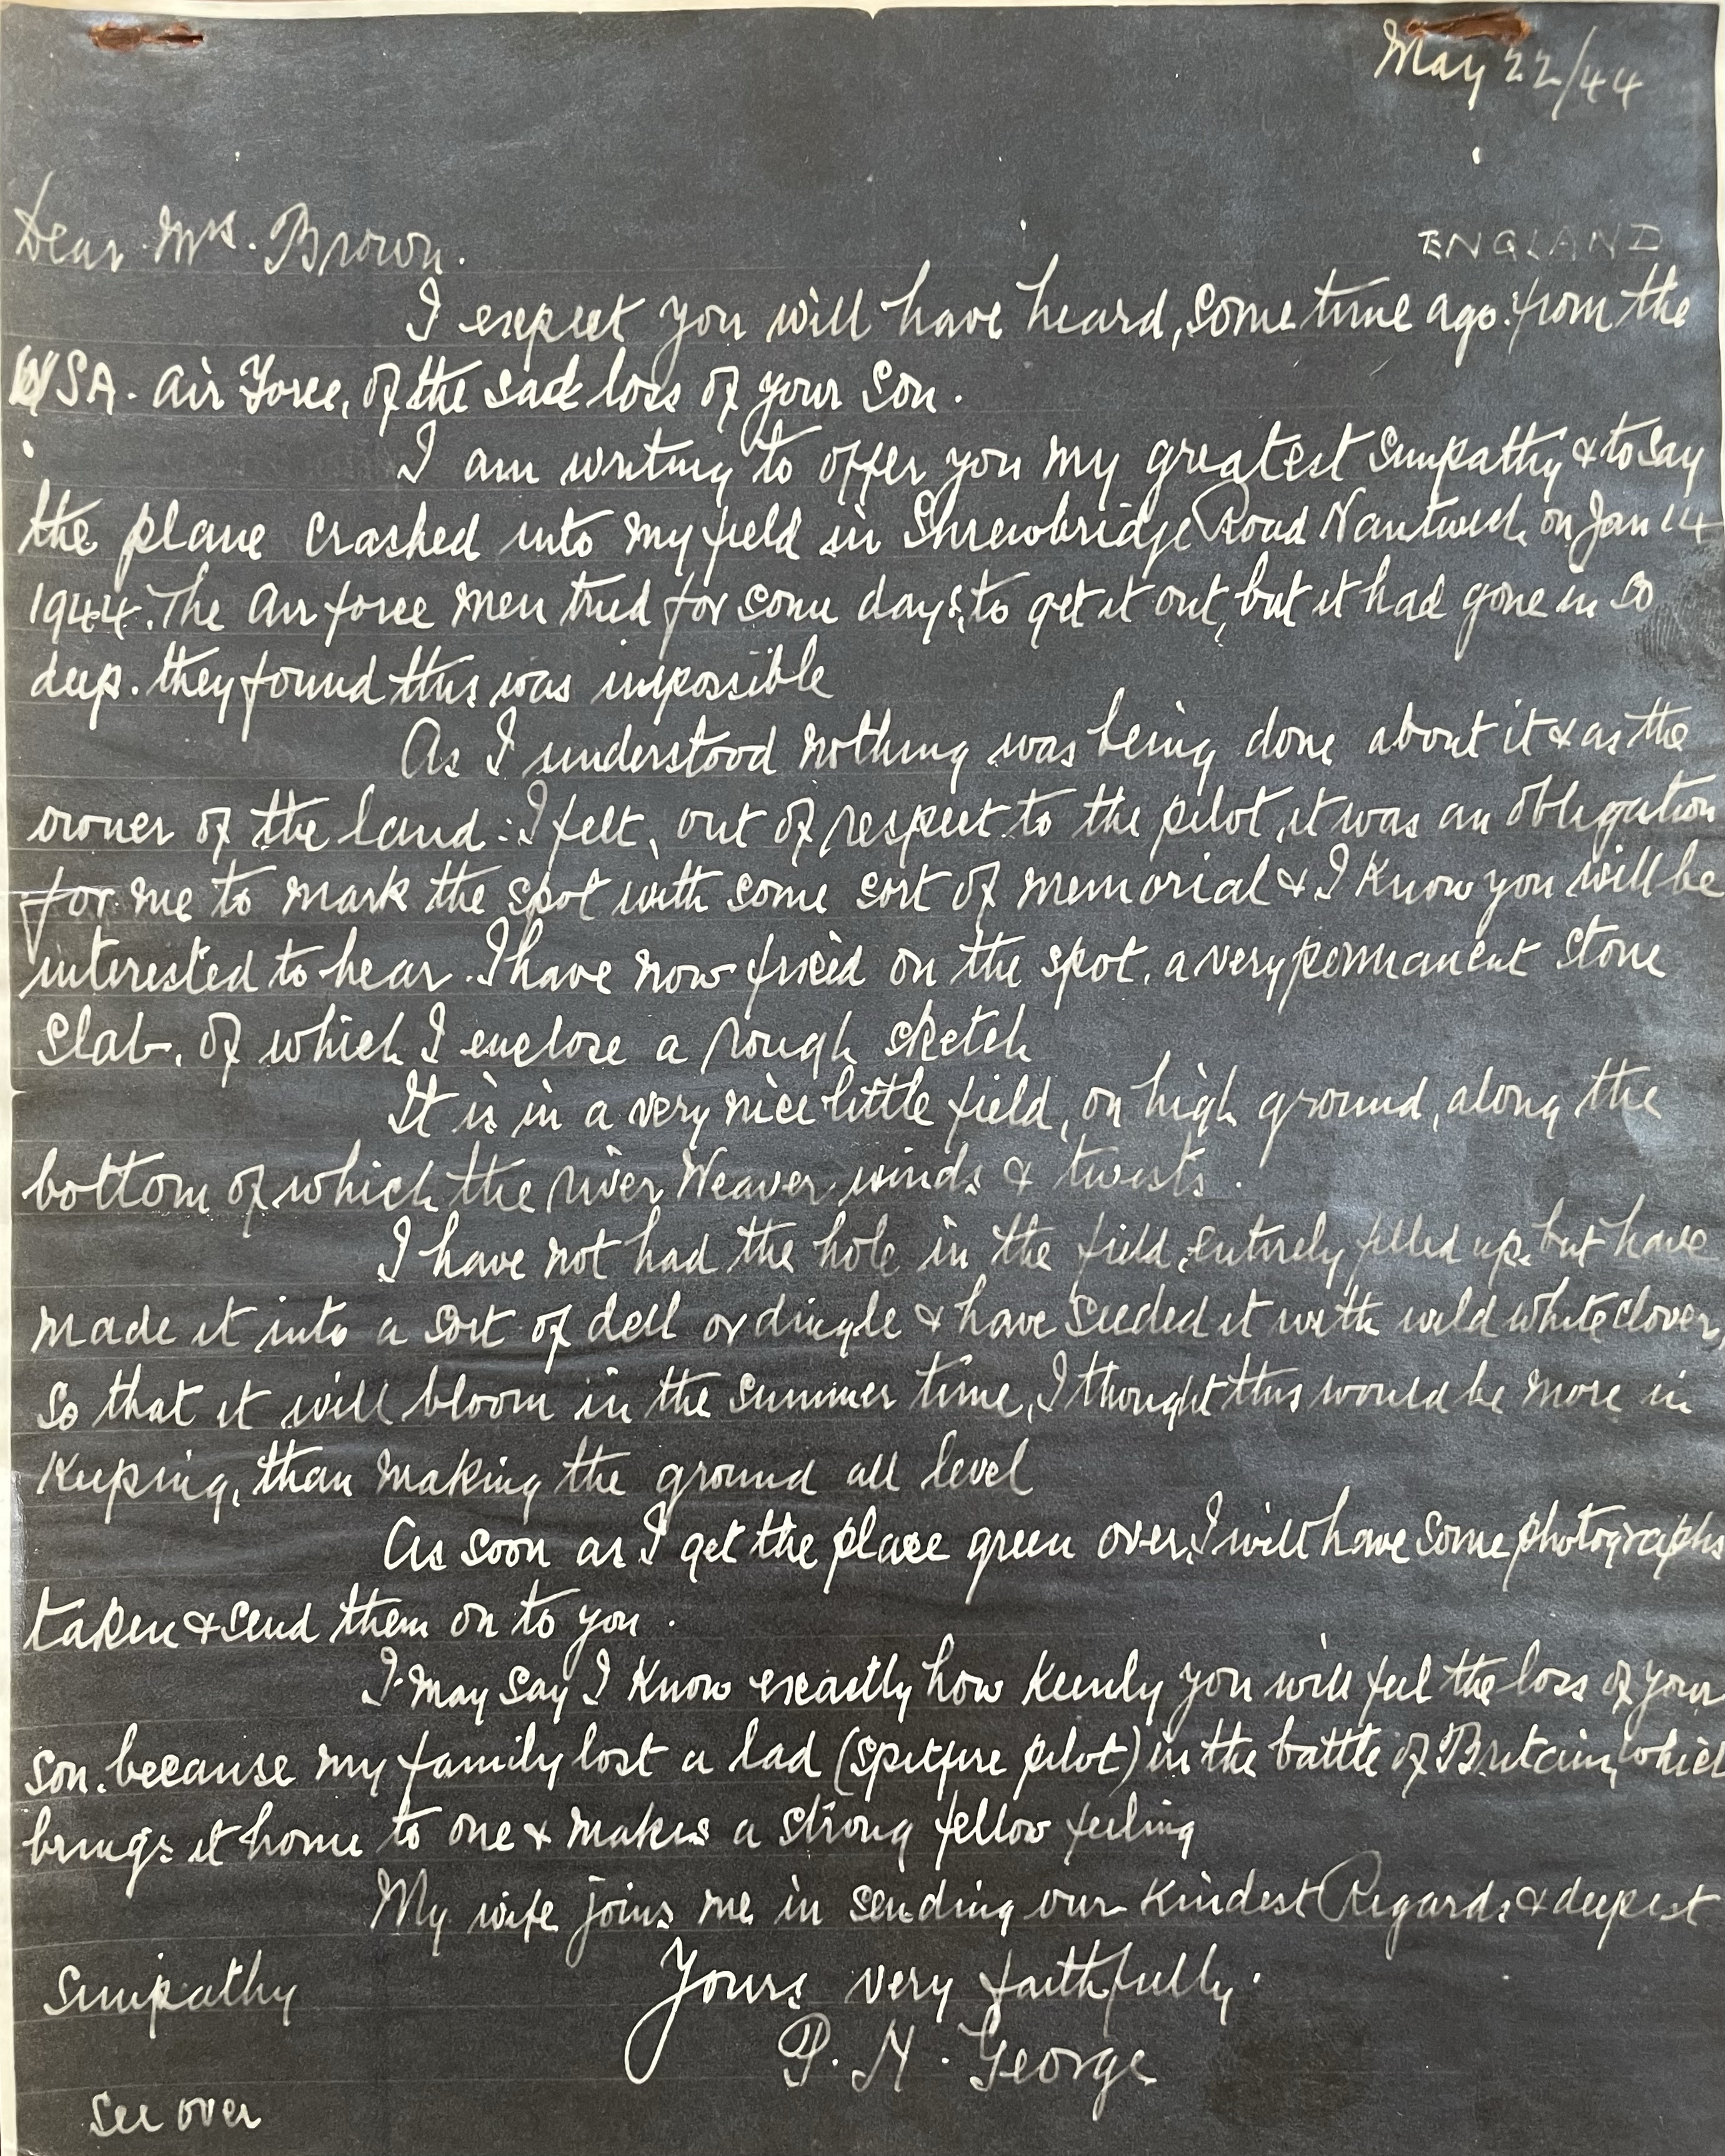 May 22/44
ENGLAND
Dear Mrs. Brown.
I expect you will have heard, some time ago. from the
USA. Air Force, of the sad loss of your Son.
I am writing to offer you my greatest Simpathy & to say
the plane crashed into my field in Shrewbridge Road Nantwich on Jan 14
1944. The Air force men tried for some days, to get it out, but it had gone in so
deep. they found this was impossible
As I understood nothing was being done about it & as the
owner of the land: I felt, out of respect to the pilot, it was an obligation
for me to mark the spot with some sort of memorial & I know you will be
interested to hear. I have now fixed on the spot, a very permanent stone
slab, of which I enclose a rough sketch
It is in a very nice little field, on high ground, along the
bottom of which the river Weaver winds & twists.
I have not had the hole in the field, entirely filled up, but have
made it into a sort of dell or dingle & have seeded it with wild white clover,
so that it will bloom in the summer time, I thought this would be more in
keeping, than making the ground all level
As soon as I get the place green over, I will have some photographs
taken & send them on to you.
I may say I know exactly how keenly you will feel the loss of your
son. because my family lost a lad (spitfire pilot) in the battle of Britain, which
brings it home to one & makes a strong fellow feeling
My wife joins me in sending our kindest Regards & deepest
Simpathy
Yours very faithfully.
P. H. George
See over